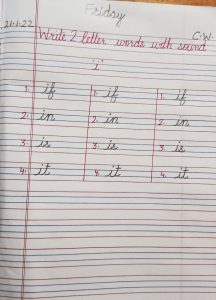 Friday
21.1.22 C.W.
Write 2 letter words with sound
'i'
1. if 1. if 1. if
2. in 2. in 2. in
3. is 3. is 3. is
4. it 4. it 4. it